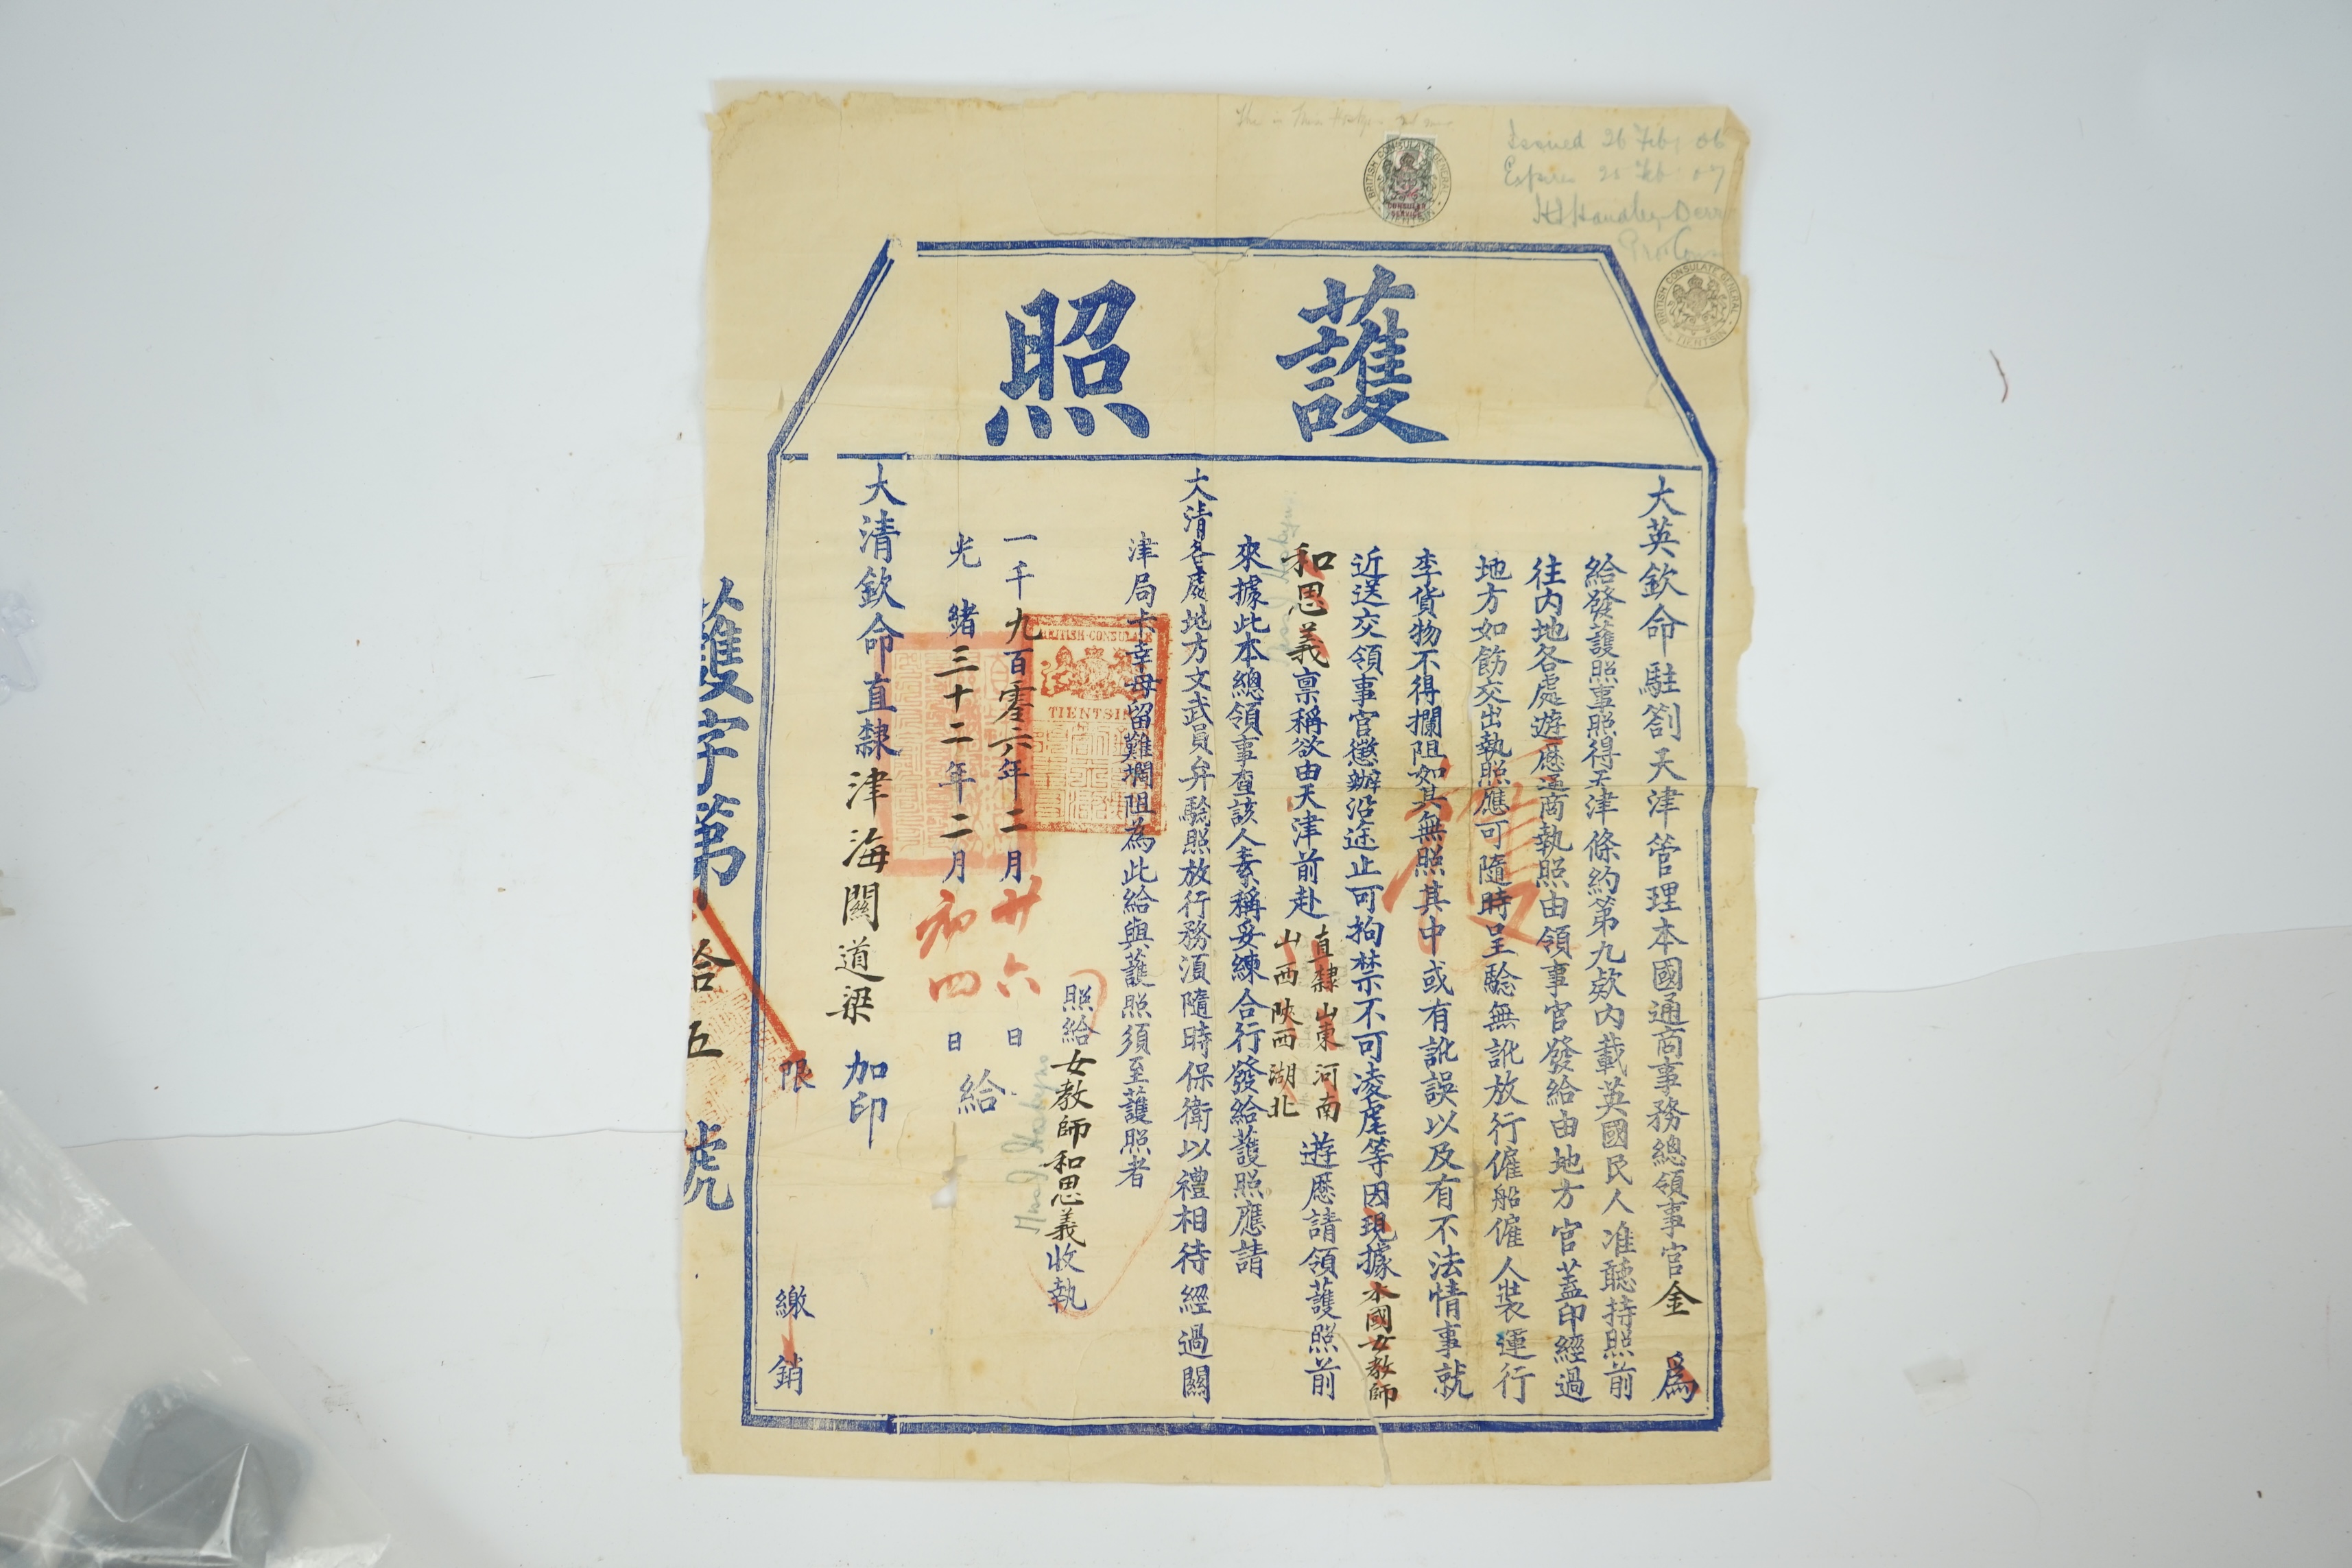 Issued 26 Feby 06
BRITISH CONSULATE GENERAL
TIENTSIN
CONSULAR SERVICE
BRITISH CONSULATE GENERAL
TIENTSIN
護照
大英欽命駐劄天津管理本國通商事務總領事官金 爲
給發護照事照得天津條約第九欵內載英國民人准聽持照前
往內地各處遊歷通商執照由領事官發給由地方官蓋印經過
地方如飭交出執照應可隨時呈驗無訛放行僱船僱人裝運行
李貨物不得攔阻如其無照其中或有訛誤以及有不法情事就
近送交領事官懲辦沿途止可拘禁不可凌虐等因現據本國女教師
和思義禀稱欲由天津前赴直隸山東河南山西陝西湖北遊歷請領護照前
來據此本總領事查該人素稱妥練合行發給護照應請
大清各處地方文武員弁驗照放行務須隨時保衛以禮相待經過關
津局卡幸毋留難攔阻為此給與護照須至護照者
照給女教師和思義收執
一千九百零六年二月廿六日
光緒三十二年二月初四日
給
大清欽命直隸津海關道梁 加印
限 繳銷
護字第拾五號
BRITISH CONSULATE
TIENTSIN